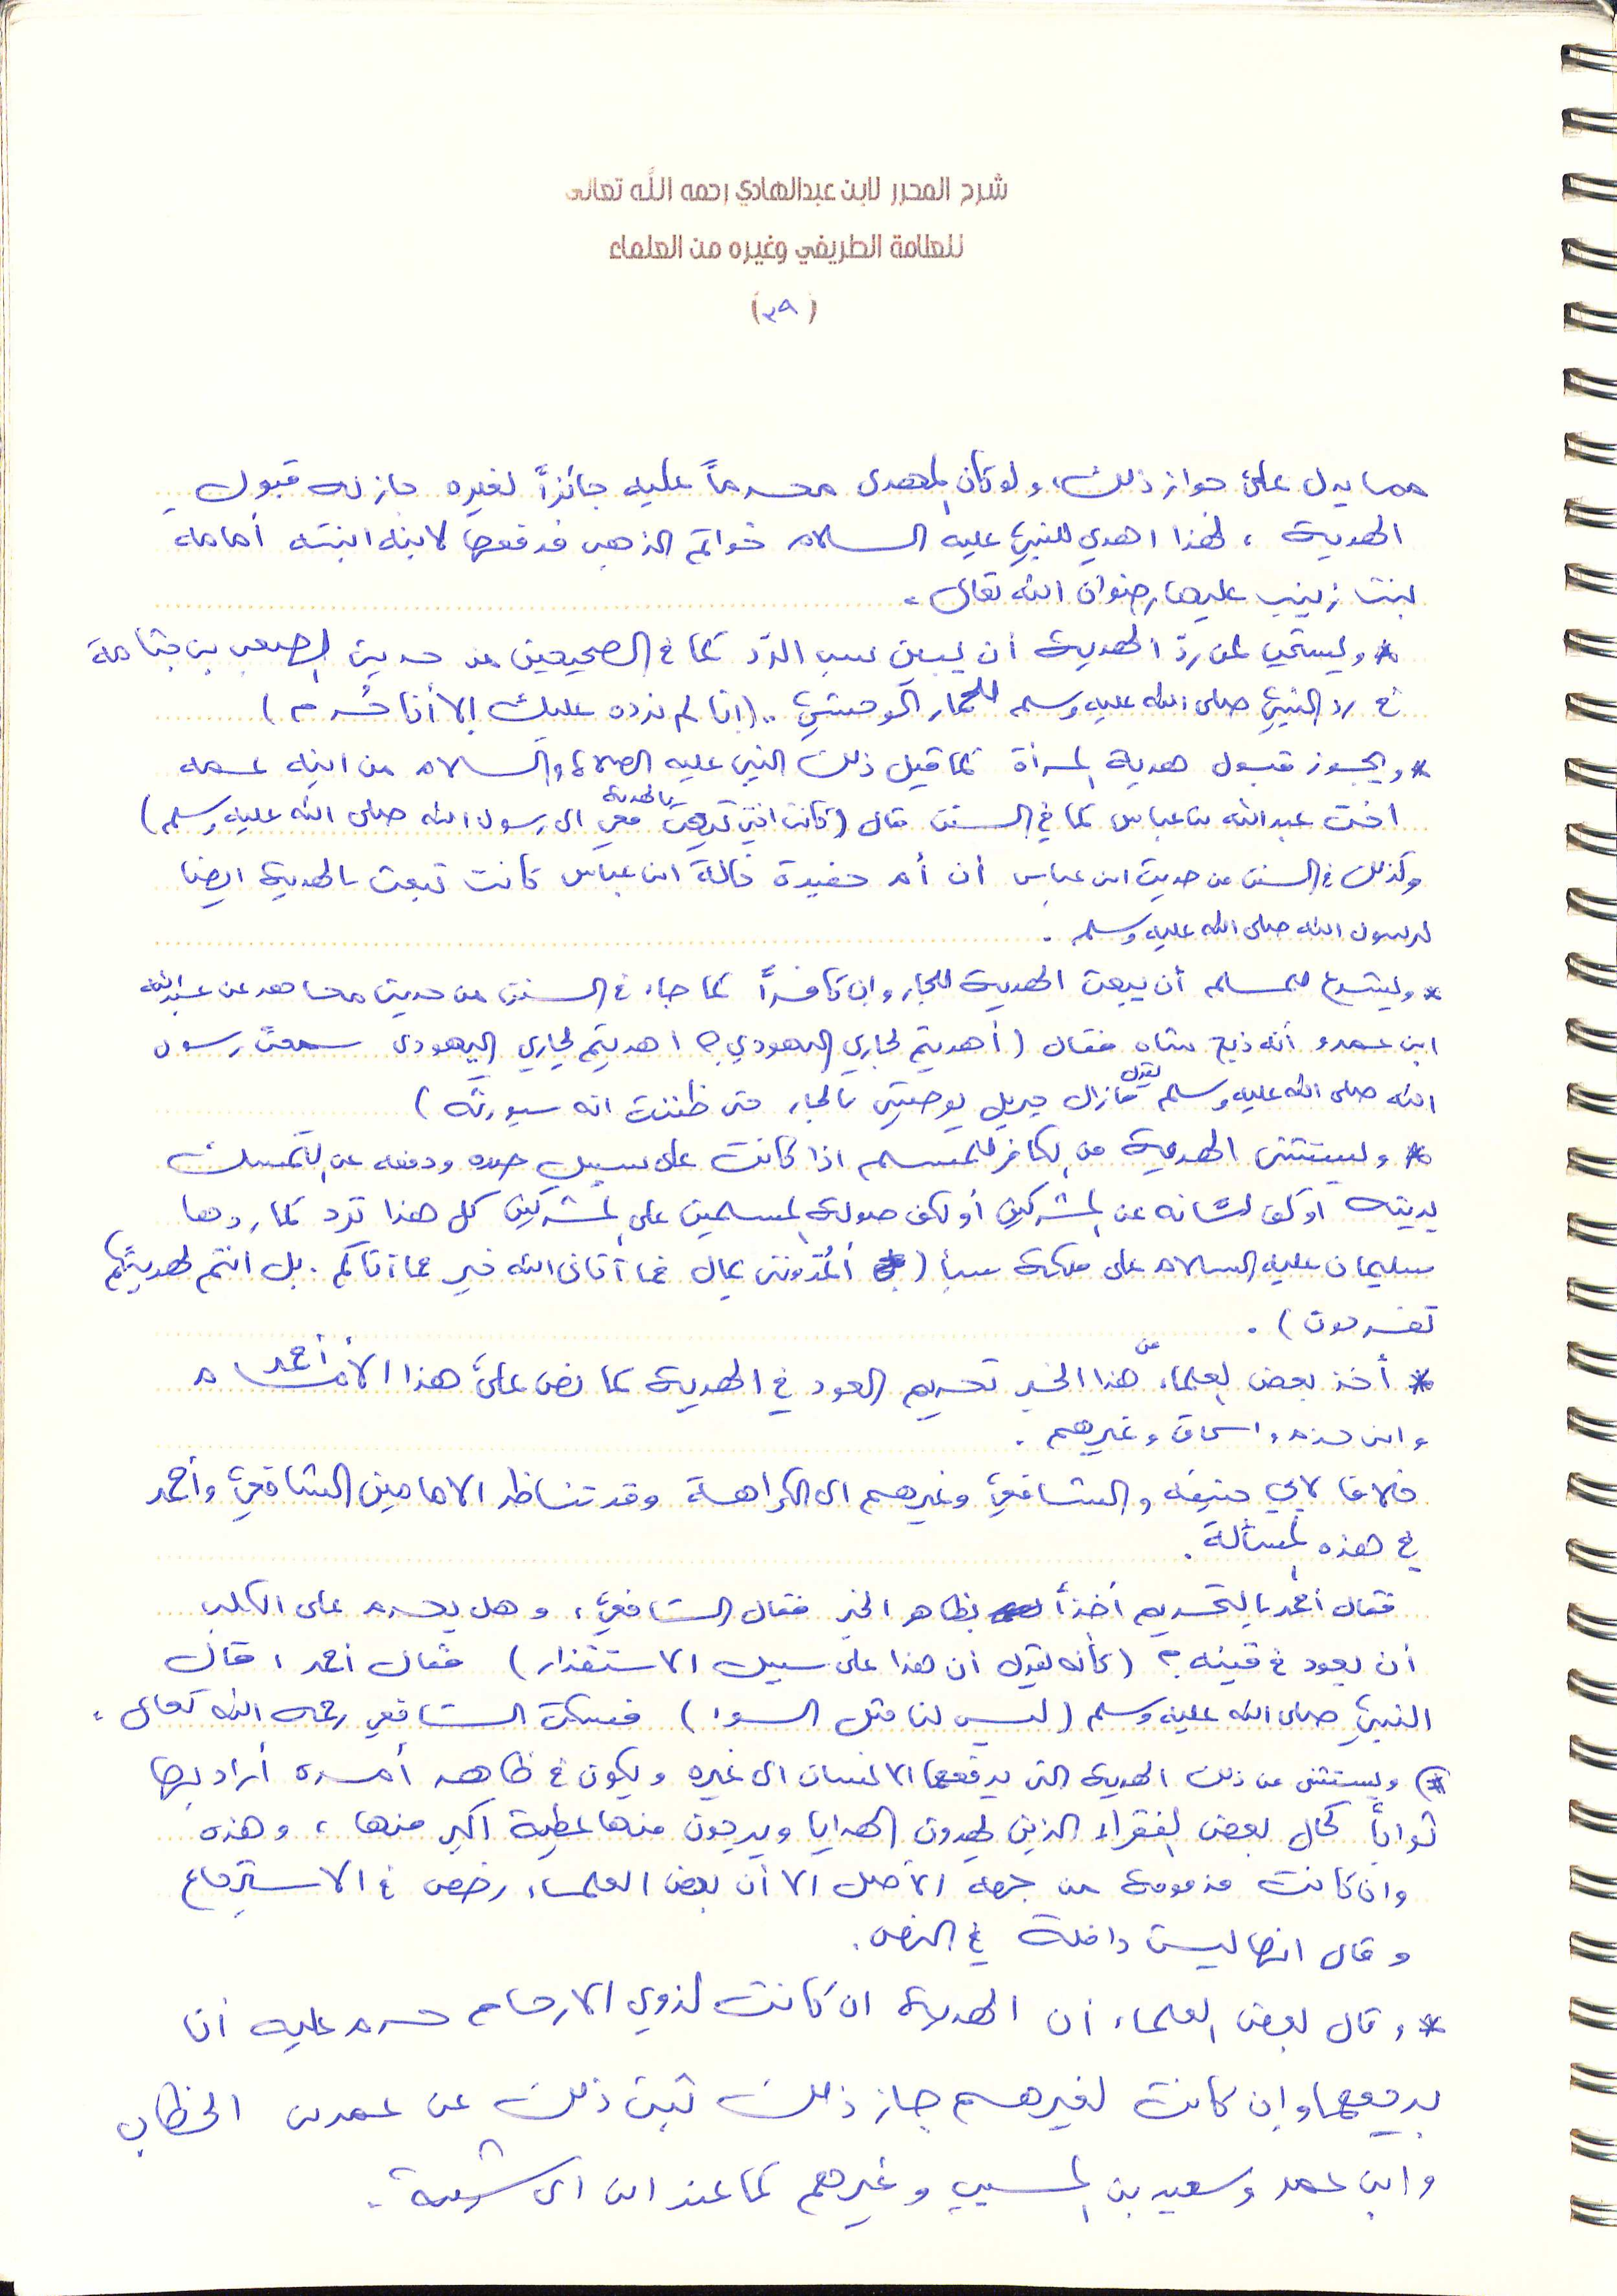 شرح المحرر لابن عبدالهادي رحمه الله تعالى
للعلامة الطريفي وغيره من العلماء
(٣٩)
مما يدل على جواز ذلك، ولو كان المهدى محرماً عليه جائزاً لغيره جاز له قبول
الهدية ، لهذا اهدي للنبي عليه السلام خواتم الذهب فدفعها لابنة ابنته أمامه
بنت زينب عليها رضوان الله تعالى .
* ويستحب لمن ردّ الهدية أن يبين سبب الردّ كما في الصحيحين من حديث الصعب بن جثامة
في رد النبي صلى الله عليه وسلم للحمار الوحشي .. (انا لم نرده عليك إلا أنا حُرم )
* ويجوز قبول هدية المرأة كما قبل ذلك النبي عليه الصلاة والسلام من ابنة عمه
اخت عبدالله بن عباس كما في السنن قال (كانت اختي تبعث معي بالهدية الى رسول الله صلى الله عليه وسلم)
وكذلك في السنن من حديث ابن عباس أن أم حفيدة خالة ابن عباس كانت تبعث بالهدية ايضا
لرسول الله صلى الله عليه وسلم .
* ويشرع للمسلم أن يبعث الهدية للجار وان كافراً كما جاء في السنن من حديث مجاهد عن عبدالله
ابن عمرو أنه ذبح شاه فقال (أهديتم لجاري اليهودي ؟ اهديتم لجاري اليهودى سمعت رسول
الله صلى الله عليه وسلم يقول مازال جبريل يوصيني بالجار حتى ظننت انه سيورثه )
* ويستثنى الهدية من الكافر للمسلم اذا كانت على سبيل صده ودفعه عن التمسك
بدينه أو كف لسانه عن المشركين أو لكف صولة المسلمين على المشركين كل هذا ترد كما ردها
سليمان عليه السلام على ملكة سبأ ( أتمدونن بمال فما آتاني الله خير مما آتاكم . بل انتم بهديتكم
تفرحون ) .
* أخذ بعض العلماء من هذا الخبر تحريم العود في الهدية كما نص على هذا الأمام أحمد
وابن حزم واسحاق وغيرهم .
خلافا لابي حنيفه والشافعي وغيرهم الى الكراهة وقد تناظر الامامين الشافعي وأحمد
في هذه المسألة .
فقال أحمد بالتحريم أخذاً بظاهر الخبر فقال الشافعي ، وهل يحرم على الكلب
أن يعود في قيئه ؟ (كأنه يقول أن هذا على سبيل الاستقذار) فقال أحمد ، قال
النبي صلى الله عليه وسلم (ليس لنا مثل السوء ) فسكت الشافعي رحمه الله تعالى .
*) ويستثنى من ذلك الهدية التى يدفعها الانسان الى غيره ويكون في ظاهر أمره أراد بها
ثواباً كحال بعض الفقراء الذين يهدون الهدايا ويرجون منها عطية أكبر منها ، وهذه
وان كانت مذمومة من جهة الأصل الا أن بعض العلماء رخص في الاسترجاع
وقال انها ليست داخلة في النص .
* وقال بعض العلماء أن الهدية ان كانت لذوي الارحام حرم عليه أن
يرجعها وإن كانت لغيرهم جاز ذلك ثبت ذلك عن عمر بن الخطاب
وابن عمر وسعيد بن المسيب وغيرهم كما عند ابن ابى شيبة .